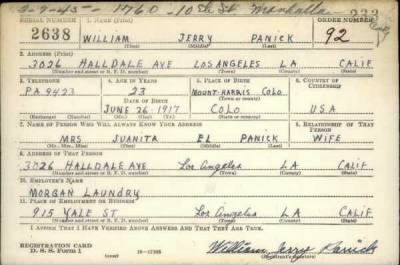 3-9-45-- 1760-10th St Manhattan 233
SERIAL NUMBER 1. NAME (Print) ORDER NUMBER
2638 WILLIAM JERRY PANICK 92
(First) (Middle) (Last)
2. ADDRESS (Print)
3026 HALLDALE AVE LOS ANGELES LA CALIF
(Number and street or R. F. D. number) (Town) (County) (State)
3. TELEPHONE 4. AGE IN YEARS 5. PLACE OF BIRTH 6. COUNTRY OF CITIZENSHIP
PA 9423 23 MOUNT-HARRIS COLO
(Town or county)
DATE OF BIRTH
JUNE 26-1917 COLO USA
(Exchange) (Number) (Mo.) (Day) (Yr.) (State or country)
7. NAME OF PERSON WHO WILL ALWAYS KNOW YOUR ADDRESS 8. RELATIONSHIP OF THAT PERSON
MRS JUANITA EL PANICK WIFE
(Mr., Mrs., Miss) (First) (Middle) (Last)
9. ADDRESS OF THAT PERSON
3026 HALLDALE AVE Los Angeles LA CALIF
(Number and street or R. F. D. number) (Town) (County) (State)
10. EMPLOYER'S NAME
MORGAN LAUNDRY
11. PLACE OF EMPLOYMENT OR BUSINESS
915 YALE ST Los Angeles LA CALIF
(Number and street or R. F. D. number) (Town) (County) (State)
I AFFIRM THAT I HAVE VERIFIED ABOVE ANSWERS AND THAT THEY ARE TRUE.
REGISTRATION CARD
D. S. S. Form 1 (over) William Jerry Panick